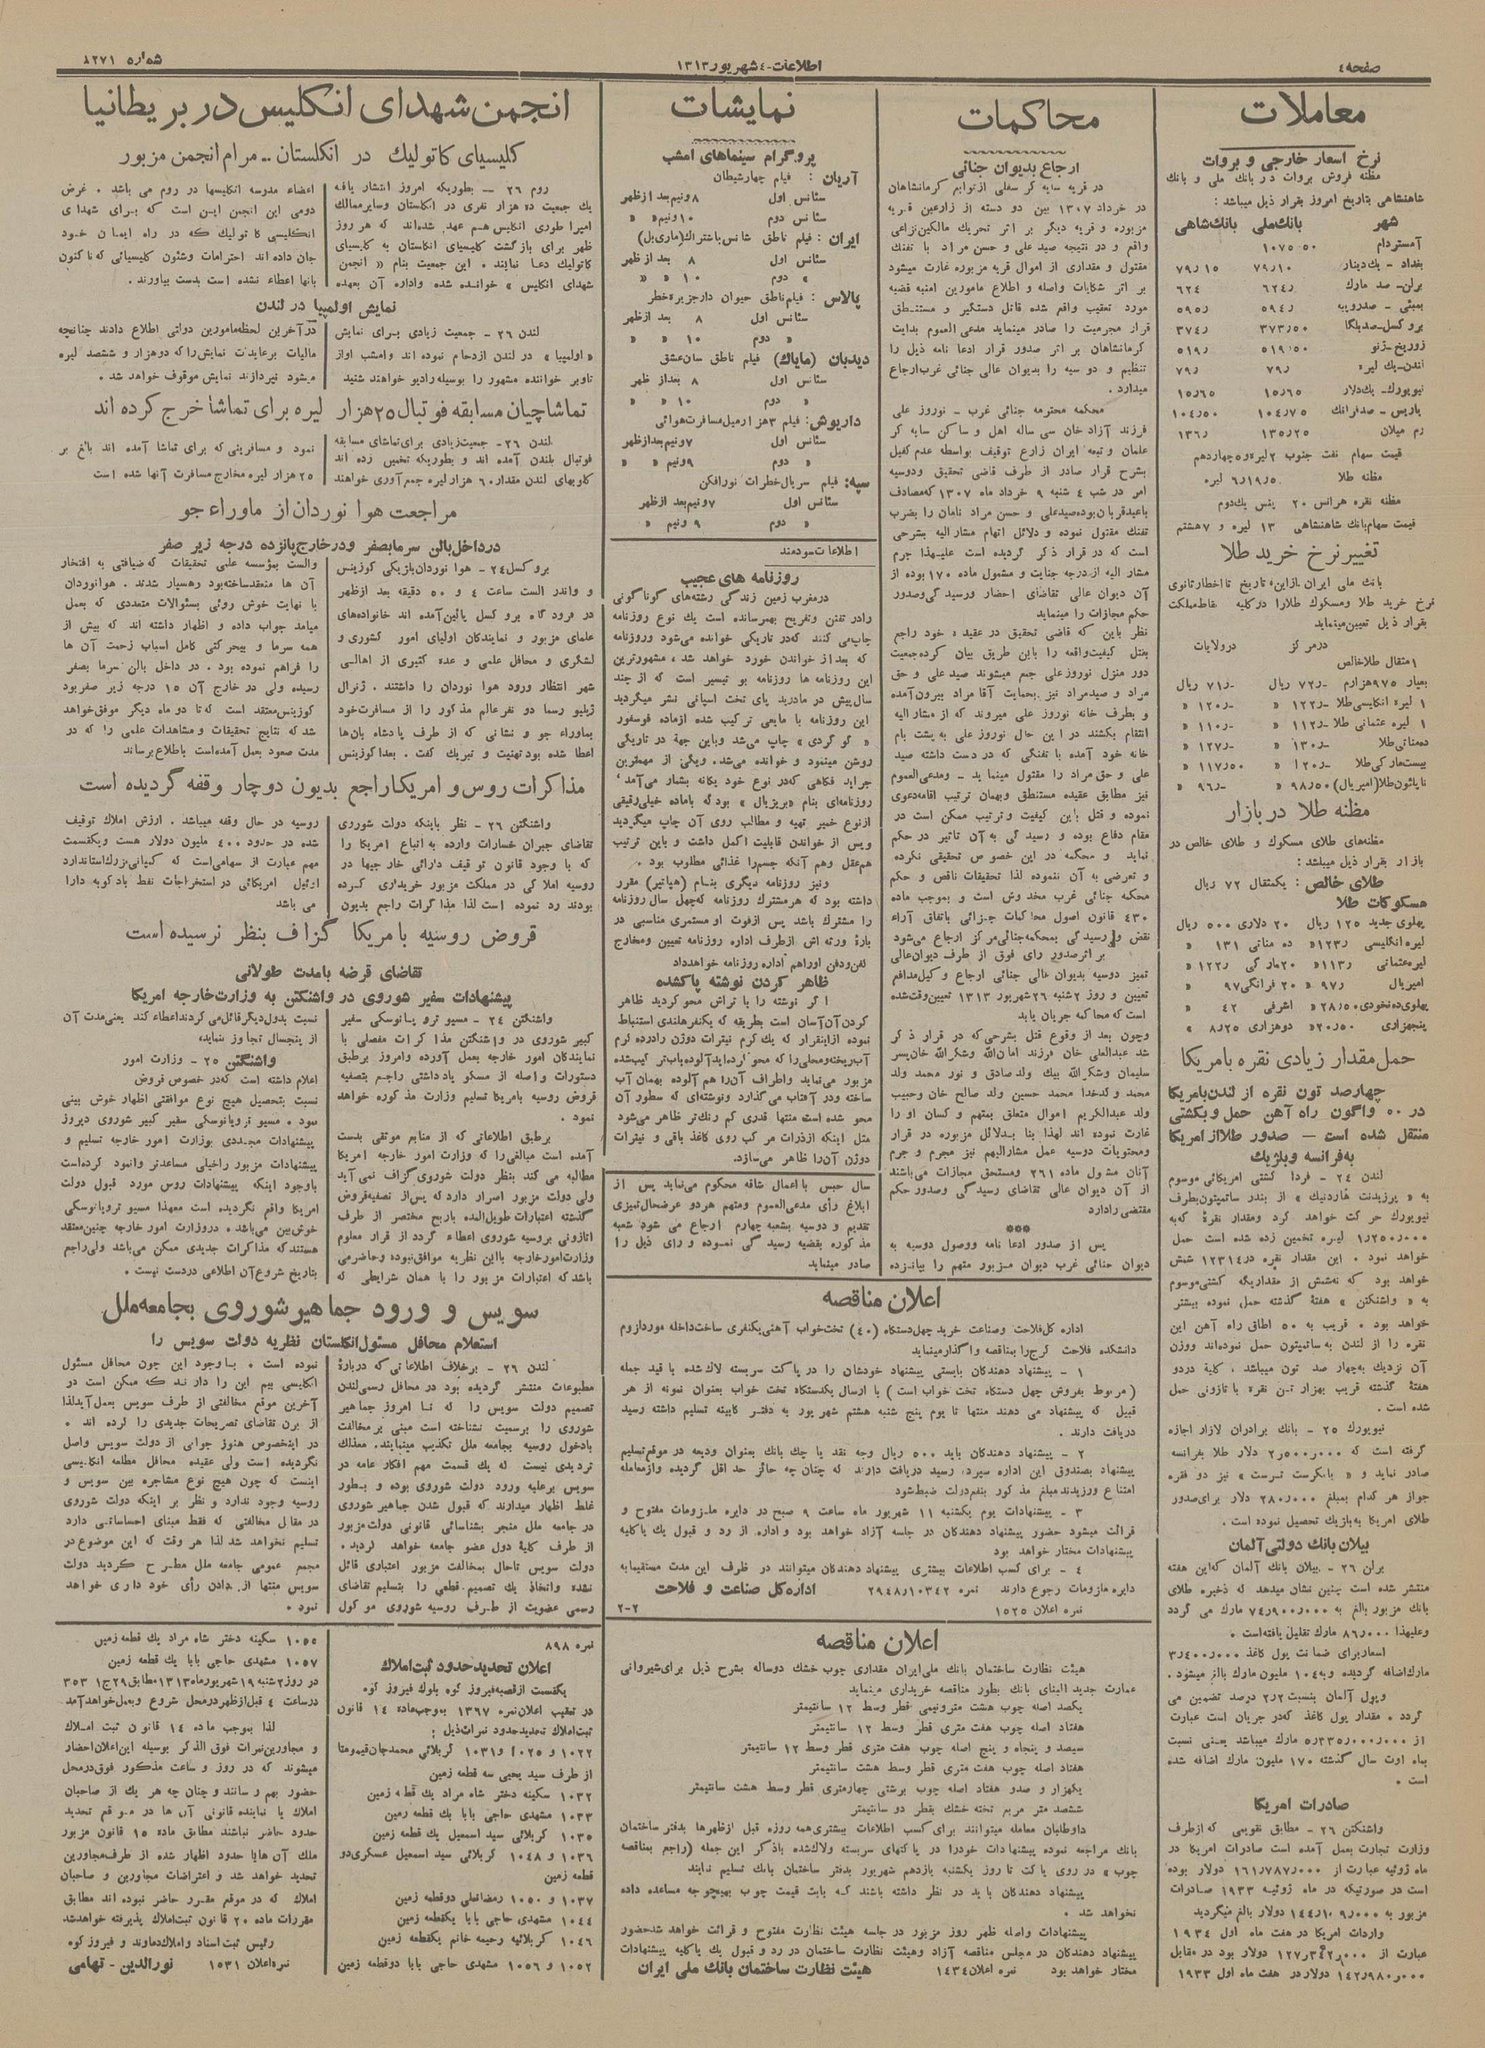 صفحه٤
اطلاعات-٤شهریور١٣١٣
شماره ٨٢٧١
معاملات
نرخ اسعار خارجی و بروات
مظنه فروش بروات در بانك ملی و بانك
شاهنشاهی بتاریخ امروز بقرار ذیل میباشد :
شهر بانك‌ملی بانك‌شاهی
آمستردام ١٠٧٥٫٥٠
بغداد - یك‌دینار ٧٩٫١٠ ٧٩٫١٥
برلن- صد مارك ٦٢٤٫ ٦٢٤
بمبئی - صدروپیه ٥٩٤٫ ٥٩٥٫
بروکسل-صدبلگا ٣٧٣٫٥٠ ٣٧٤٫
زوریخ-ژنو ٥١٩٫٥٠ ٥١٩٫
لندن-یك لیره ٧٩٫ ٧٩٫
نیویورك-یك‌دلار ١٥٫٦٥ ١٥٫٦٥
پاریس - صدفرانك ١٠٤٫٧٥ ١٠٤٫٥٠
رم میلان ١٣٥٫٢٥ ١٣٦٫
قیمت سهام نفت جنوب ٢لیره‌و٥چهاردهم
مظنه طلا ٦٫١٩٫٥٠ لیره
مظنه نقره هرانس ٢٠ پنس یك‌دوم
قیمت سهام‌بانك شاهنشاهی ١٣ لیره و ٧هشتم
تغییر نرخ خرید طلا
بانك ملی ایران ازاین تاریخ تا اخطارثانوی
نرخ خرید طلا ومسکوك طلارا درکلیه نقاط‌مملکت
بقرار ذیل تعیین‌مینماید
درمرکز درولایات
١مثقال طلاخالص
بعیار ٩٧٥هزارم -٫٧٢ ریال -٫٧١ ریال
١ لیره انگلیسی‌طلا -٫١٢٢ « -٫١٢٠ «
١ لیره عثمانی طلا -٫١١٢ « -٫١١٠ «
ده‌مناتی‌طلا -٫١٣٠ « -٫١٢٧ «
بیست‌مارکی‌طلا -٫١٢٠ « ١١٧٫٥٠ «
ناپلئون‌طلا(امپریال)٩٨٫٥٠ « -٫٩٦ «
مظنه طلا در بازار
مظنه‌های طلای مسکوك و طلای خالص در
بازار بقرار ذیل میباشد :
طلای خالص : یکمثقال ٧٢ ریال
مسکوکات طلا
پهلوی جدید ١٢٥ ریال ٢٠ دلاری ٥٠٠ ریال
لیره‌انگلیسی ١٢٣٫« ده مناتی ١٣١ «
لیره‌عثمانی ١١٣٫« ٢٠مارکی ١٢٢٫ «
امپریال ٩٧٫ « ٢٠ فرانکی٩٧ «
پهلوی‌ده‌نخودی٢٨٫٥٠« اشرفی ٤٢ «
پنجهزاری ٢٠٫٥٠« دوهزاری ٨٫٢٥ «
حمل مقدار زیادی نقره بامریکا
چهارصد تون نقره از لندن‌بامریکا
در ٥٠ واگون راه آهن حمل وبکشتی
منتقل شده است — صدور طلااز امریکا
به‌فرانسه وبلژیك
لندن ٢٤ - فردا کشتی امریکائی موسوم
به « پرزیدنت هاردنیك » از بندر ساتمپتون‌بطرف
نیویورك حرکت خواهد کرد ومقدار نقره‌ که‌به
١٫٢٥٠٫٠٠٠ لیره تخمین زده شده است حمل
خواهد نمود . این مقدار نقره در١٢٣١٤ شمش
خواهد بود که نه‌شمش از مقداریکه کشتی‌موسوم
به « واشنگتن » هفتهٔ گذشته حمل نموده بیشتر
خواهد بود . قریب به ٥٠ اطاق راه آهن این
نقره را از لندن به ساتمپتون حمل نموده‌اند ووزن
آن نزدیك بچهار صد تون میباشد . کلیة دردو
هفتهٔ گذشته قریب بهزار تن نقره با تازونی حمل
شده است .
نیویورك ٢٥ - بانك برادران لازار اجازه
گرفته است که ٢٫٥٠٠٫٠٠٠ دلار طلا بفرانسه
صادر نماید و « بانکرست ترست » نیز دو فقره
جواز هر کدام بمبلغ ٢٨٠٫٠٠٠ دلار برای‌صدور
طلای امریکا به‌بلژیك تحصیل نموده است .
بیلان بانك دولتی آلمان
برلن ٢٦ - بیلان بانك آلمان که‌این هفته
منتشر شده است چنین نشان میدهد که ذخیره طلای
بانك مزبور بالغ به ٧٤٫٩٠٠٫٠٠٠ مارك می گردد
وعلیهذا ٨٦٫٠٠٠ مارك تقلیل یافته‌است .
اسعاربرای ضمانت پول کاغذ ٣٫٤٠٠٫٠٠٠
مارك‌اضافه گردیده و به١٠٤ ملیون مارك بالغ میشود.
وپول آلمان بنسبت ٢٫٢ درصد تضمین می
گردد . مقدار پول کاغذ که‌در جریان است عبارت
از ٥٫٣٣٥٫٠٠٠٫٠٠٠ مارك میباشد یعنی نسبت
بماه اوت سال گذشته ١٧٠ ملیون مارك اضافه شده
است .
صادرات امریکا
واشنگتن ٢٦ - مطابق تقویمی که‌ازطرف
وزارت تجارت بعمل آمده است صادرات امریکا در
ماه ژوئیه عبارت از ١٦١٫٧٨٧٫٠٠٠ دولار بوده
است در صورتیکه در ماه ژوئیه ١٩٣٣ صادرات
مزبور به ١٤٤٫١٠٩٫٠٠٠ دولار بالغ میگردید
واردات امریکا در هفت ماه اول ١٩٣٤
دولار بود در مقابل
١٤٢٫٩٨٠٫٠٠٠ دولاردر هفت ماه اول ١٩٣٣
محاکمات
ارجاع بدیوان جنائی
در قریه سایه کر سفلی ازتوابع کرمانشاهان
در خرداد ١٣٠٧ بین دو دسته از زارعین قریه
مزبوره و قریه دیگر بر اثر تحریك مالکین‌نزاعی
واقع و در نتیجه صید علی و حسن مراد با تفنك
مقتول و مقداری از اموال قریه مزبوره غارت میشود
بر اثر شکایات واصله و اطلاع مامورین امنیه قضیه
مورد تعقیب واقع شده قاتل دستگیر و مستنطق
قرار مجرمیت را صادر مینماید مدعی العموم بدایت
کرمانشاهان بر اثر صدور قرار ادعا نامه ذیل را
تنظیم و دوسیه را بدیوان عالی جنائی غرب‌ارجاع
میدارد .
محکمه محترمه جنائی غرب - نوروز علی
فرزند آزاد خان سی ساله اهل و ساکن سایه کر
علمان و تبعه ایران زارع توقیف بواسطه عدم کفیل
بشرح قرار صادر از طرف قاضی تحقیق ودوسیه
امر در شب ٤ شنبه ٩ خرداد ماه ١٣٠٧ که‌مصادف
باعیدقربان‌بوده‌صیدعلی و حسن مراد نامان را بضرب
تفنك مقتول نموده و دلائل اتهام مشار الیه بشرحی
است که در قرار ذکر گردیده است علیهذا جرم
مشار الیه از درجه جنایت و مشمول ماده ١٧٠ بوده از
آن دیوان عالی تقاضای احضار ورسیدگی‌وصدور
حکم مجازات را مینماید
نظر باین که قاضی تحقیق در عقیده خود راجع
بقتل کیفیت‌واقعه را باین طریق بیان کرده‌جمعیت
دور منزل نوروز علی جمع میشوند صید علی و حق
مراد و صیدمراد نیز بحمایت آقا مراد بیرون‌آمده
و بطرف خانه نوروز علی میروند که از مشار الیه
انتقام بکشند در این حال نوروز علی به پشت بام
خانه خود آمده با تفنگی که در دست داشته صید
علی و حق مراد را مقتول مینماید - ومدعی‌العموم
نیز مطابق عقیده مستنطق وبهمان ترتیب اقامه‌دعوی
نموده و قتل باین کیفیت و ترتیب ممکن است در
مقام دفاع بوده و رسیدگی به آن تاثیر در حکم
نماید و محکمه در این خصوص تحقیقی نکرده
و تعرضی به آن ننموده لذا تحقیقات ناقص و حکم
محکمه جنائی غرب مخدوش است و بموجب ماده
٤٣٠ قانون اصول محاکمات جزائی باتفاق آراء
نقض و رسیدگی بمحکمه‌جنائی‌مرکز ارجاع می‌شود
بر اثرصدور رای فوق از طرف دیوان‌عالی
تمیز دوسیه بدیوان عالی جنائی ارجاع و وکیل‌مدافع
تعیین و روز ٢شنبه ٢٦شهریور ١٣١٣ تعیین‌وقت‌شده
است که محاکمه جریان یابد
وچون بعد از وقوع قتل بشرحی‌که در قرار ذکر
شد عبدالعلی خان فرزند امان‌الله وشکرالله خان‌پسر
سلیمان وشکرالله بیك ولدصادق و نور محمد ولد
محمد و کدخدا محمد حسین ولد صالح خان وحبیب
ولد عبدالکریم اموال متعلق بمتهم و کسان او را
غارت نموده اند لهذا بنا بدلائل مزبوره در قرار
ومحتویات دوسیه عمل مشارالیهم نیز مجرم و جرم
آنان مشمول ماده ٢٦١ ومستحق مجازات می‌باشند
از آن دیوان عالی تقاضای رسیدگی وصدور حکم
مقتضی رادارد
***
پس از صدور ادعا نامه ووصول دوسیه به
دیوان جنائی غرب دیوان مزبور متهم را بپانزده
نمایشات
پروگرام سینماهای امشب
آریان : فیلم چهارشیطان
سئانس اول ٨ونیم‌بعد ازظهر
سئانس دوم ١٠ونیم« «
ایران : فیلم ناطق شانس باشتراك(ماری‌بل)
سئانس اول ٨ بعد ازظهر
« دوم ١٠ « «
پالاس : فیلم‌ناطق حیوان دارجزیره‌خطر
سئانس اول ٨ بعد ازظهر
« دوم ١٠ « «
دیدبان (مایاك) فیلم ناطق سان‌عشق
سئانس اول ٨ بعداز ظهر
« دوم ١٠ « «
داریوش: فیلم ٣هزارمیل‌مسافرت‌هوائی
سئانس اول ٧ونیم‌بعدازظهر
« دوم ٩ونیم « «
سپه: فیلم سریال‌خطرات نورافکن
سئانس اول ٧ونیم‌بعد ازظهر
« دوم ٩ ونیم « «
اطلاعات‌سودمند
روزنامه های عجیب
درمغرب زمین زندگی رشته‌های گوناگونی
رادر تفنن وتفریح بهم‌رسانده است یك نوع روزنامه
چاپ‌می کنند که‌در تاریکی خوانده می‌شود وروزنامه
که بعد از خواندن خورد خواهد شد ، مشهورترین
این روزنامه ها روزنامه بو تیسیر است که از چند
سال پیش در مادرید پای تخت اسپانی نشر میگردید
این روزنامه با مایعی ترکیب شده ازماده فوسفور
« گوگردی » چاپ می‌شد وباین جهة در تاریکی
روشن مینمود و خوانده می‌شد. ویکی از مهمترین
جراید فکاهی که‌در نوع خود یگانه بشمار می‌آمد،
روزنامه‌ای بنام «بریزیال » بود که باماده خیلی‌رقیقی
ازنوع خمیر تهیه و مطالب روی آن چاپ میگردید
وپس از خواندن قابلیت اکمل داشت و باین ترتیب
هم‌عقل وهم آنکه جسم‌را غذائی مطلوب بود .
ونیز روزنامه دیگری بنام (هیاتیر) مقرر
داشته بود که هرمشترك روزنامه که‌چهل سال روزنامه
را مشترك باشد پس ازفوت او مستمری مناسبی در
بارهٔ ورثه اش ازطرف اداره روزنامه تعیین ومخارج
کفن‌ودفن اوراهم اداره روزنامه خواهدداد
ظاهر کردن نوشته پاکشده
اگر نوشته را با تراش محو کردید ظاهر
کردن‌آن‌آسان است بطریقه که یکنفرهلندی استنباط
نموده ازاینقرار که یك‌گرم نیترات دوژن رادرده گرم
آب‌ریخته‌ومحلی‌را که محو کرده‌اید آلوده‌باب‌ترکیب‌شده
مزبور می‌نماید واطراف آن‌را هم آلوده بهمان آب
ساخته ودر آفتاب می‌گذارد ونوشته‌ای که سطور آن
محو شده است منتها قدری کم رنك‌تر ظاهر می‌شود
مثل اینکه ازذرات مرکب روی کاغذ باقی و نیترات
دوژن آن‌را ظاهر می‌سازد.
سال حبس با اعمال شاقه محکوم می‌نماید پس از
ابلاغ رأی مدعی‌العموم ومتهم هردو عرضحال‌تمیزی
تقدیم و دوسیه بشعبه چهارم ارجاع می شود شعبه
مذکوره بقضیه رسیدگی نموده و رای ذیل را
صادر مینماید
اعلان مناقصه
اداره کل‌فلاحت وصناعت خرید چهل‌دستگاه (٤٠) تخت‌خواب آهنی‌یکنفری ساخت‌داخله موردلزوم
دانشکده فلاحت کرج‌را بمناقصه واگذارمینماید
١ - پیشنهاد دهندگان بایستی پیشنهاد خودشان را در پاکت سربسته لاك‌شده با قید جمله
(مربوط بفروش چهل دستگاه تخت خواب است) با ارسال یکدستگاه تخت خواب بعنوان نمونه از هر
قبیل که پیشنهاد می دهند منتها تا یوم پنج شنبه هشتم شهریور به دفتر کابینه تسلیم داشته رسید
دریافت دارند .
٢ - پیشنهاد دهندگان باید ٥٠٠ ریال وجه نقد یا چك بانك بعنوان ودیعه در موقع‌تسلیم
پیشنهاد بصندوق این اداره سپرده رسید دریافت دارند که چنان چه حائز حداقل گردیده وازمعامله
امتناع ورزیدند مبلغ مذکور بنفع‌دولت ضبط‌شود.
٣ - پیشنهادات یوم یکشنبه ١١ شهریور ماه ساعت ٩ صبح در دایره ملزومات مفتوح و
قرائت میشود حضور پیشنهاد دهندگان در جلسه آزاد خواهد بود واداره از رد و قبول یك یاکلیه
پیشنهادات مختار خواهد بود
٤ - برای کسب اطلاعات بیشتری پیشنهاد دهندگان میتوانند در ظرف این مدت مستقیمابه
دایره ملزومات رجوع دارند نمره ٢٩٤٨٫١٠٣٤٢ اداره کل صناعت و فلاحت
نمره اعلان ١٥٢٥ ٢-٢
اعلان مناقصه
هیئت نظارت ساختمان بانك ملی‌ایران مقداری چوب خشك دوساله بشرح ذیل برای‌شیروانی
عمارت جدید البنای بانك بطور مناقصه خریداری مینماید
یکصد اصله چوب هشت مترونیمی قطر وسط ١٢ سانتیمتر
هفتاد اصله چوب هفت متری قطر وسط ١٢ سانتیمتر
سیصد و پنجاه و پنج اصله چوب هفت متری قطر وسط ١٢ سانتیمتر
هفتاد اصله چوب هفت متری قطر وسط هشت سانتیمتر
یکهزار و صدو هفتاد اصله چوب برشتی چهارمتری قطر وسط هشت سانتیمتر
ششصد متر مربع تخته خشك بقطر دو سانتیمتر
داوطلبان معامله میتوانند برای کسب اطلاعات بیشتری‌همه روزه قبل ازظهرها بدفتر ساختمان
بانك مراجعه نموده پیشنهادات خودرا در پاکتهای سربسته ولاك‌شده باذکر این جمله (راجع بمناقصه
چوب » در روی پاکت تا روز یکشنبه یازدهم شهریور بدفتر ساختمان بانك تسلیم نمایند
پیشنهاد دهندگان باید در نظر داشته باشند که بابت قیمت چوب بهیچوجه مساعده داده
نخواهد شد .
پیشنهادات واصله ظهر روز مزبور در جلسه هیئت نظارت مفتوح و قرائت خواهد شدحضور
پیشنهاد دهندگان در مجلس مناقصه آزاد وهیئت نظارت ساختمان در رد و قبول یك یاکلیه پیشنهادات
مختار خواهد بود نمره اعلان١٤٣٤ هیئت نظارت ساختمان بانك ملی ایران
انجمن شهدای انگلیس در بریطانیا
کلیسیای کاتولیك در انگلستان.. مرام انجمن مزبور
روم ٢٦ - بطوریکه امروز انتشار یافته
یك جمعیت ده هزار نفری در انگلستان وسایرممالك
امپراطوری انگلیس هم عهد شده‌اند که هر روز
ظهر برای بازگشت کلیسیای انگلستان به کلیسیای
کاتولیك دعا نمایند . این جمعیت بنام « انجمن
شهدای انگلیس » خوانده شده واداره آن بعهده
اعضاء مدرسه انگلیسها در روم می باشد . غرض
دومی این انجمن این است که برای شهدای
انگلیسی کاتولیك که در راه ایمان خود
جان داده اند احترامات وشئون کلیسیائی که‌تاکنون
بانها اعطاء نشده است بدست بیاورند.
نمایش اولمپیا در لندن
لندن ٢٦ - جمعیت زیادی برای نمایش
« اولمپیا » در لندن ازدحام نموده اند وامشب اواز
تاوبر خواننده مشهور را بوسیله رادیو خواهند شنید
درآخرین لحظه‌مامورین دولتی اطلاع دادند چنانچه
مالیات برعایدات نمایش‌را که دوهزار و ششصد لیره
میشود نپردازند نمایش موقوف خواهد شد .
تماشاچیان مسابقه فوتبال ٢٥هزار لیره برای تماشا خرج کرده اند
لندن ٢٦- جمعیت‌زیادی برای تماشای مسابقه
فوتبال بلندن آمده اند و بطوریکه تخمین زده اند
کلوبهای لندن مقدار ٦٠ هزار لیره جمع‌آوری خواهند
نمود و مسافرینی که برای تماشا آمده اند بالغ بر
٢٥ هزار لیره مخارج مسافرت آنها شده است
مراجعت هوا نوردان از ماوراء جو
درداخل‌بالن سرمابصفر ودرخارج پانزده درجه زیر صفر
بروکسل ٢٤- هوا نوردان‌بلژیکی کوزینس
و واندر الست ساعت ٤ و ٥٠ دقیقه بعد ازظهر
در فرودگاه بروکسل پائین‌آمده اند خانواده‌های
علمای مزبور و نمایندگان اولیای امور کشوری و
لشگری و محافل علمی و عده کثیری از اهالی
شهر انتظار ورود هوا نوردان را داشتند . ژنرال
ژیلیو رسما دو نفرعالم مذکور را از مسافرت‌خود
بماوراء جو و نشانی که از طرف پادشاه بان‌ها
اعطا شده بود تهنیت و تبریك گفت . بعدا کوزینس
والست بمؤسسه علمی تحقیقات که‌ضیافتی به افتخار
آن ها منعقدساخته‌بود رهسپار شدند . هوانوردان
با نهایت خوش روئی بسئوالات متعددی که بعمل
میامد جواب داده و اظهار داشته اند که بیش از
همه سرما و بیحرکتی کامل اسباب زحمت آن ها
را فراهم نموده بود . در داخل بالن سرما بصفر
رسیده ولی در خارج آن ١٥ درجه زیر صفربود
کوزینس معتقد است که تا دو ماه دیگر موفق‌خواهد
شد که نتایج تحقیقات و مشاهدات علمی را که در
مدت صعود بعمل آمده‌است باطلاع برساند
مذاکرات روس و امریکاراجع بدیون دوچار وقفه گردیده است
واشنگتن ٢٦ - نظر باینکه دولت شوروی
تقاضای جبران خسارات وارده به اتباع امریکا را
که با وجود قانون توقیف دارائی خارجیها در
روسیه املاکی در مملکت مزبور خریداری کرده
بودند رد نموده است لذا مذاکرات راجع بدیون
روسیه در حال وقفه میباشد . ارزش املاك توقیف
شده در حدود ٤٠٠ ملیون دولار هست ویکقسمت
مهم عبارت از سهامی‌است که کمپانی‌بزرك‌استاندارد
ارئیل امریکائی در استخراجات نفط بادکوبه دارا
می باشد
قروض روسیه بامریکا گزاف بنظر نرسیده است
تقاضای قرضه بامدت طولانی
پیشنهادات سفیر شوروی در واشنگتن به وزارت‌خارجه امریکا
واشنگتن ٢٤ - مسیو ترویانوسکی سفیر
کبیر شوروی در واشنگتن مذاکرات مفصلی با
نمایندگان امور خارجه بعمل آورده وامروز برطبق
دستورات واصله از مسکو یادداشتی راجع بتصفیه
قروض روسیه بامریکا تسلیم وزارت مذکوره خواهد
نمود .
برطبق اطلاعاتی که از منابع موثقی بدست
آمده است مبالغی‌را که وزارت امور خارجه امریکا
مطالبه می کند بنظر دولت شوروی گزاف نمی آید
ولی دولت مزبور اصرار دارد که‌پس از تصفیه‌قروض
گذشته اعتبارات طویل‌المده باربح مختصر از طرف
اتازونی بروسیه شوروی اعطاء گردد از قرار معلوم
وزارت‌امورخارجه بااین نظریه موافق‌نبوده وحاضرمی
باشد که اعتبارات مزبور را با همان شرایطی که
نسبت بدول‌دیگرقائل‌می گردند اعطاء کند یعنی‌مدت آن
از پنجسال تجاوز ننماید،
واشنگتن ٢٥ - وزارت امور
اعلام داشته است که‌در خصوص قروض
نسبت بتحصیل هیچ نوع موافقتی اظهار خوش بینی
نمود . مسیو ترویانوسکی سفیر کبیر شوروی دیروز
پیشنهادات مجددی بوزارت امور خارجه تسلیم و
پیشنهادات مزبور راخیلی مساعدتر وانمود کرده‌است
باوجود اینکه پیشنهادات روس مورد قبول دولت
امریکا واقع نگردیده است معهذا مسیو ترویانوسکی
خوش‌بین می‌باشد . دروزارت امور خارجه چنین‌معتقد
هستندکه مذاکرات جدیدی ممکن می‌باشد ولی‌راجع
بتاریخ شروع‌آن اطلاعی دردست نیست .
سویس و ورود جماهیر شوروی بجامعه ملل
استعلام محافل مسئول‌انگلستان نظریه دولت سویس را
لندن ٢٦ - برخلاف اطلاعاتی که دربارهٔ
مطبوعات منتشر گردیده بود در محافل رسمی‌لندن
تصمیم دولت سویس را که تا امروز جماهیر
شوروی را برسمیت نشناخته است مبنی بر مخالفت
بادخول روسیه بجامعه ملل تکذیب مینمایند. معذلك
تردیدی نیست که یك قسمت مهم افکار عامه در
سویس برعلیه ورود دولت شوروی بوده و بطور
غلط اظهار میدارند که قبول شدن جماهیر شوروی
در جامعه ملل منجر بشناسائی قانونی دولت‌مزبور
از طرف کلیهٔ دول عضو جامعه خواهد گردید.
دولت سویس تاحال بمخالفت مزبور اعتباری قائل
نشده واتخاذ یك تصمیم قطعی را بتسلیم تقاضای
رسمی عضویت از طرف روسیه شوروی موکول
نموده است . باوجود این چون محافل مسئول
انگلیسی بیم این را دارند که ممکن است در
آخرین موقع مخالفتی از طرف سویس بعمل‌آیدلذا
از برن تقاضای تصریحات جدیدی را کرده اند .
در اینخصوص هنوز جوابی از دولت سویس واصل
نگردیده است ولی عقیده محافل مطلعه انگلیسی
اینست که چون هیچ نوع مشاجره بین سویس و
روسیه وجود ندارد و نظر بر اینکه دولت شوروی
در مقابل مخالفتی که فقط مبنای احساساتی دارد
تسلیم نخواهد شد لذا هر وقت که این موضوع در
مجمع عمومی جامعه ملل مطرح گردید دولت
سویس منتها از دادن رأی خود داری خواهد
نمود .
نمره ٨٩٨
اعلان تحدیدحدود ثبت‌املاك
یکقسمت ازقصبه‌فیروز کوه بلوك فیروز کوه
در تعقیب اعلان‌نمره ١٣٦٧ به‌وجب‌ماده ١٤ قانون
ثبت‌املاك تحدیدحدود نمرات‌ذیل :
١٠٢٢ و ١٠٢٥ و١٠٣١ کربلائی محمدجان‌قیمومتا
از طرف سید یحیی سه قطعه زمین
١٠٣٢ سکینه دختر شاه مراد یك قطعه زمین
١٠٣٣ مشهدی حاجی بابا یك قطعه زمین
١٠٣٥ کربلائی سید اسمعیل یك قطعه زمین
١٠٣٦ و ١٠٤٨ کربلائی سید اسمعیل عسکری‌دو
قطعه زمین
١٠٣٧ و ١٠٥٠ رمضانعلی دوقطعه زمین
١٠٤٤ مشهدی حاجی بابا یکقطعه زمین
١٠٤٦ کربلائیه رحیمه خانم یکقطعه زمین
١٠٥٢ و ١٠٥٦ مشهدی حاجی بابا دوقطعه زمین
١٠٥٥ سکینه دختر شاه مراد یك قطعه زمین
١٠٥٧ مشهدی حاجی بابا یك قطعه زمین
در روز ٢شنبه ١٩شهریورماه١٣١٣مطابق٢٩ج١ ٣٥٣
درساعت ٤ قبل ازظهردرمحل شروع وبعمل‌خواهدآمد
لذا به‌وجب ماده ١٤ قانون ثبت املاك
و مجاورین‌نمرات فوق الذکر بوسیله این‌اعلان‌احضار
میشوند که در روز و ساعت مذکور فوق‌درمحل
حضور بهم رسانند و چنان چه هر یك از صاحبان
املاك یا نماینده قانونی آن ها در موقع تحدید
حدود حاضر نباشند مطابق ماده ١٥ قانون مزبور
ملك آن‌هابا حدود اظهار شده از طرف‌مجاورین
تحدید خواهد شد و اعتراضات مجاورین و صاحبان
املاك که در موقع مقرر حاضر نبوده اند مطابق
مقررات ماده ٢٠ قانون ثبت‌املاك پذیرفته خواهدشد
رئیس ثبت اسناد واملاك‌دماوند و فیروز کوه
نمره‌اعلان ١٥٣١ نورالدین - تهامی